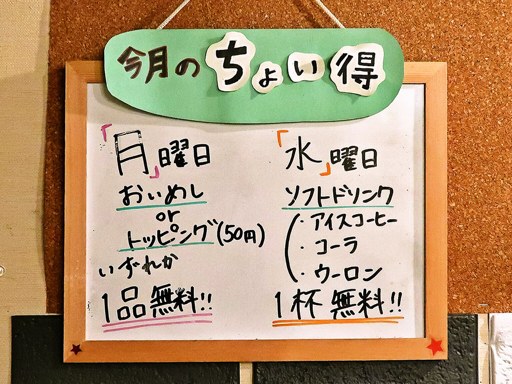 今月のちょい得
「月」曜日
おいめし
or
トッピング(50円)
いずれか
1品無料!!
「水」曜日
ソフトドリンク
・アイスコーヒー
・コーラ
・ウーロン
1杯無料!!